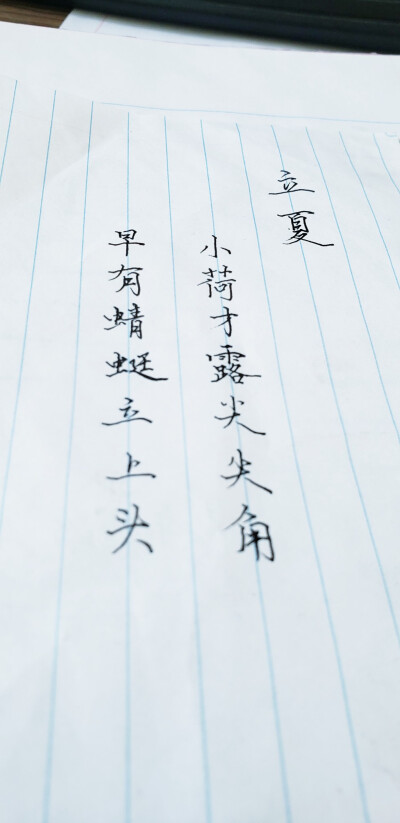 立夏
小荷才露尖尖角
早有蜻蜓立上头